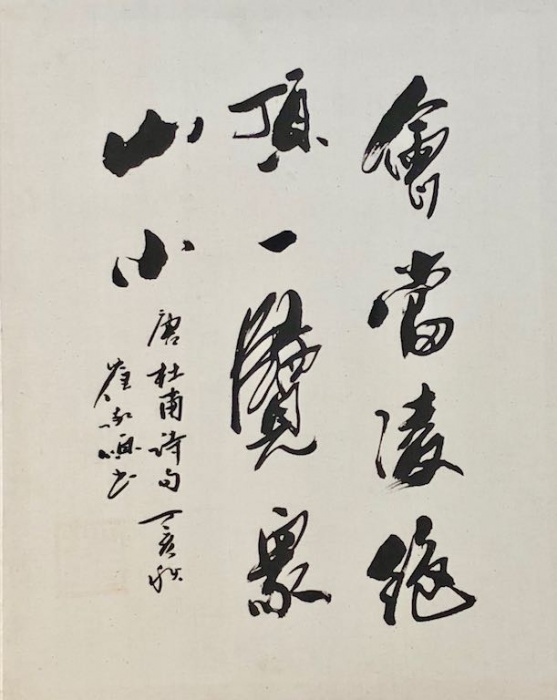 會當凌絕
頂一覽眾
山小
唐杜甫詩句 丁亥秋
崔 書